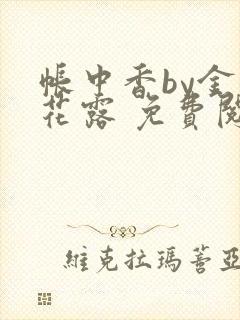 帳中香by金
花露 免費閱
維克拉瑪蓍亞